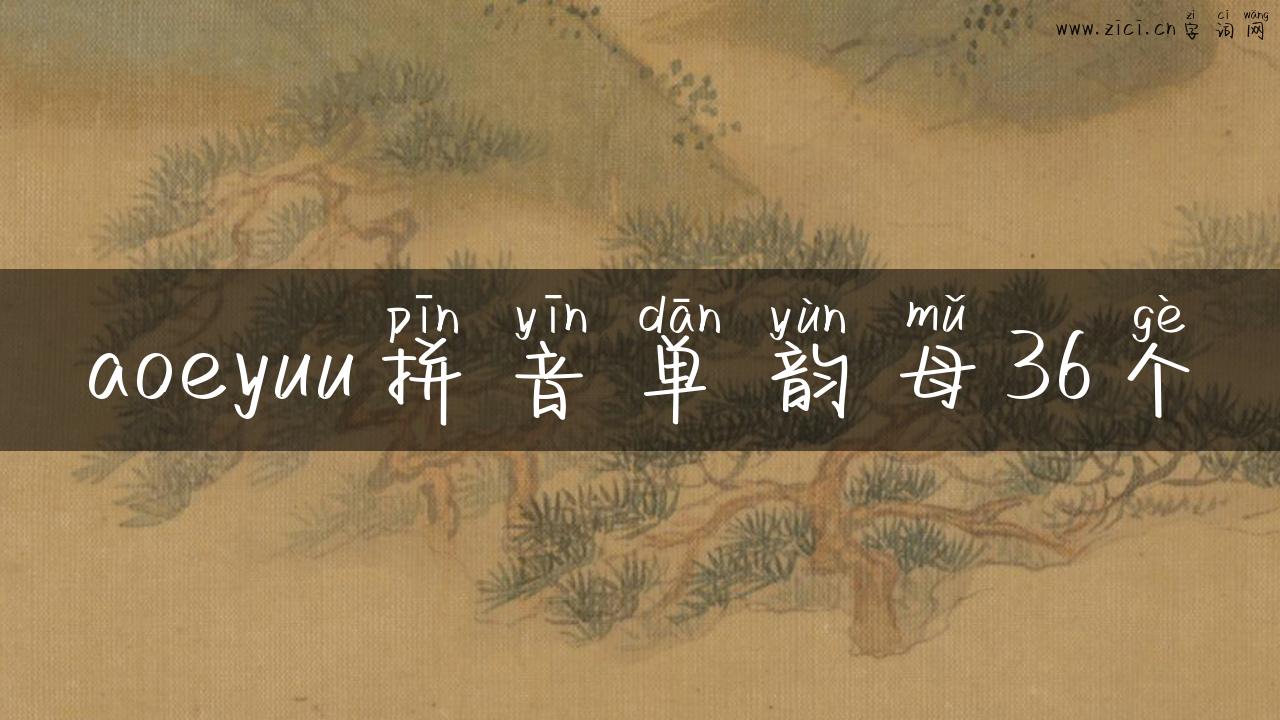 zì cí wǎng
www.zici.cn字词网
pīn yīn dān yùn mǔ gè
aoeyuu拼音单韵母36个